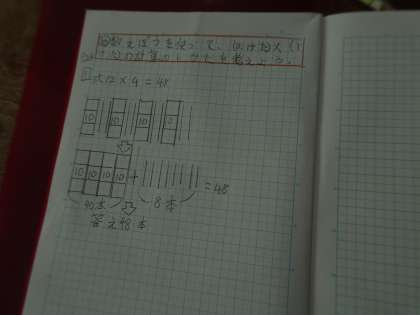 図数えぼうを使って、(2けた)×(1
けた)の計算のしかたを考えよう。
式12×4=48
10 10 10 10
10 10 10 10 + =48
40本 8本
答え48本